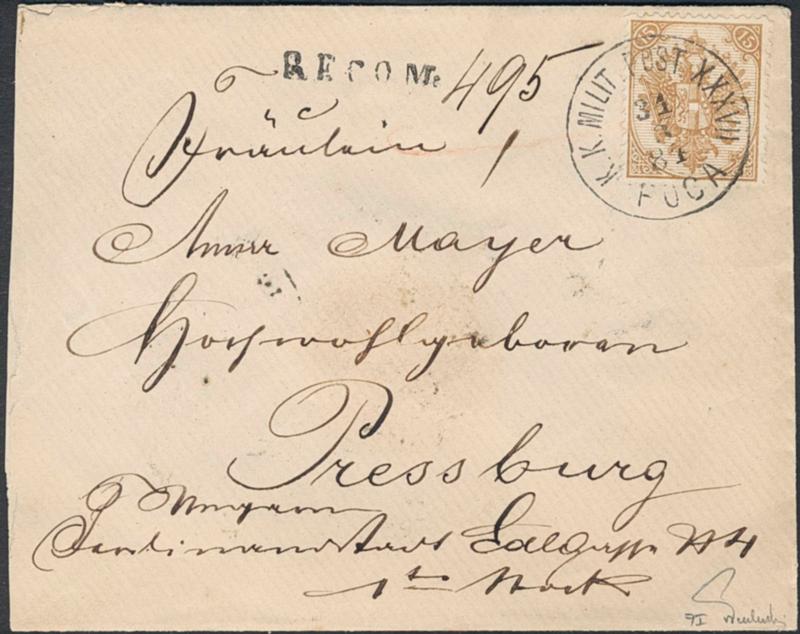 RECOM. 495
15 15
K.K. MILIT. POST. XXXVII
31
84
FOCA
Fräulein
Anna Mayer
Hochwohlgeboren
Pressburg
Ungarn
Ferdinandstadt Edlgasse N 4
1ten Stock